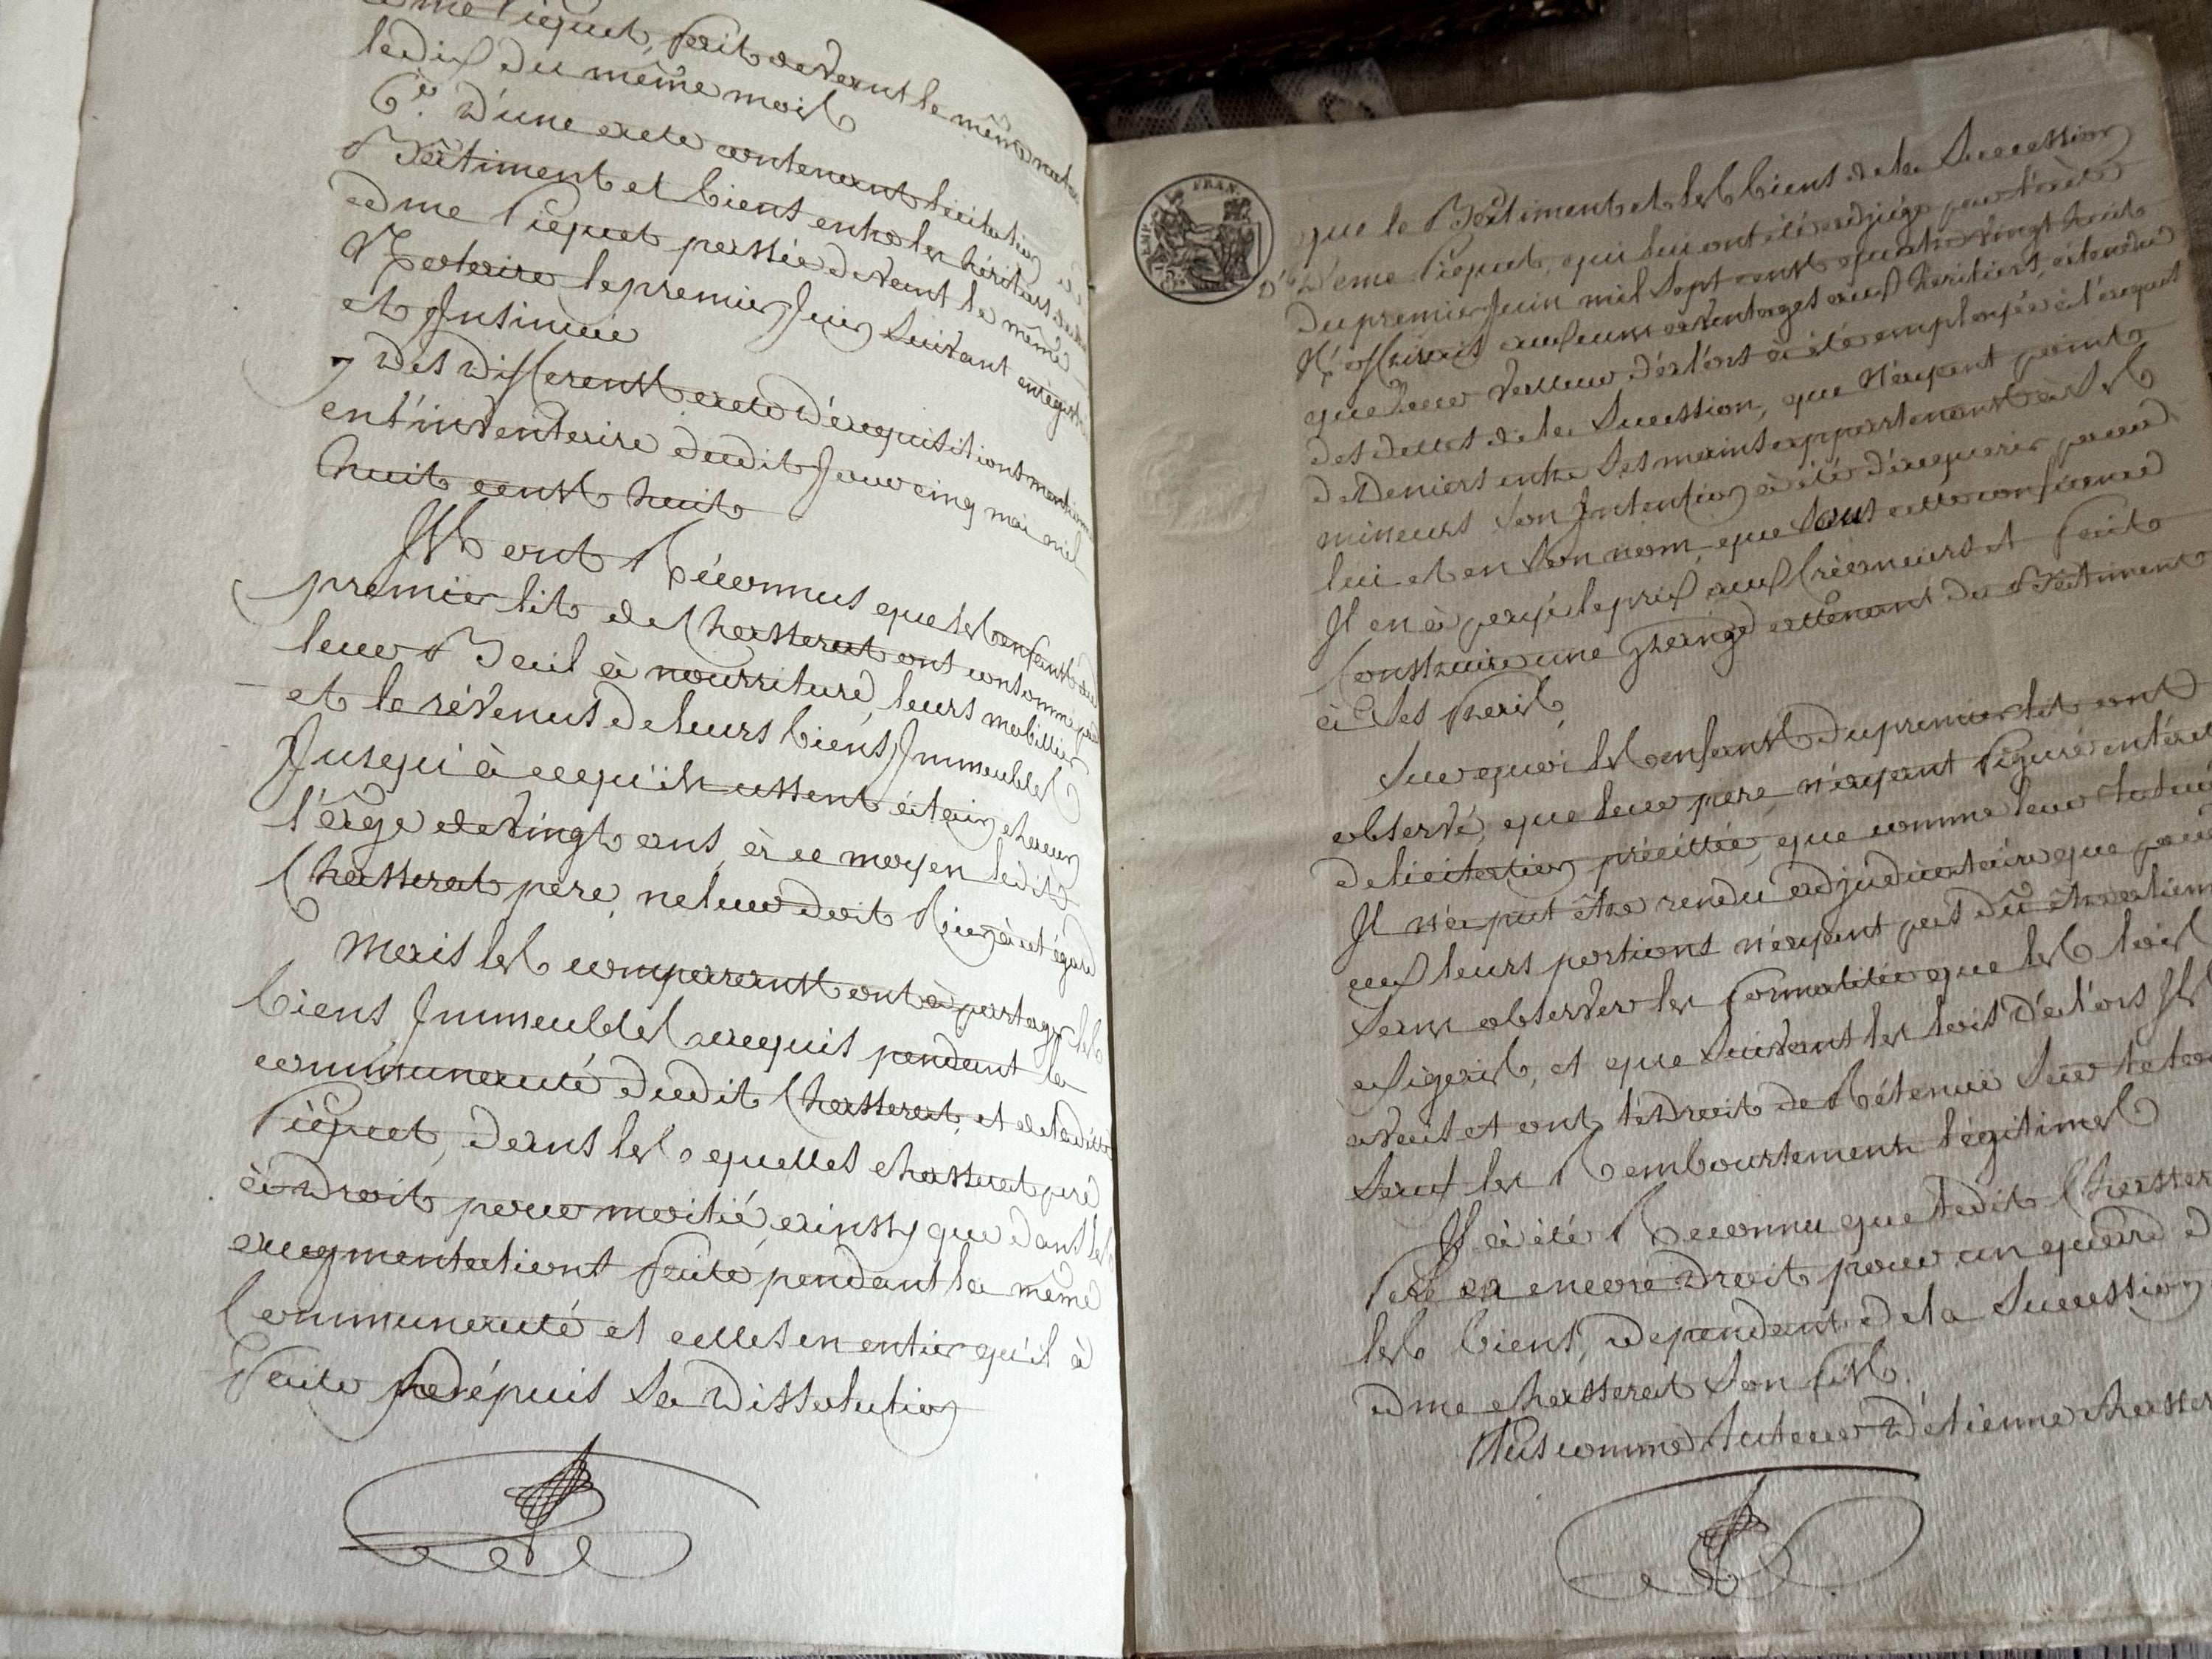 edme Piquet, fait devant le même notaire
le dix du même mois
6.° D'une acte contenant licitation de
Bâtiment et biens entre les héritiers dudit
edme Piquet passée devant le même
Notaire le premier Juin suivant enregistré
et Insinuée
7 Des differents acte d'acquisitions mentionnés
en l'inventaire dudit Jour cinq mai mil
huit cent huit
Ils ont Réconnus que les enfants du
premier lit de Chasserat ont consommé par
leur Bail à nourriture, leurs mobillier
et le révenus de leurs biens Immeubles
Jusqu'à ce qu'ils ussent atein chacun
l'age de vingt ans, à ce moyen ledit
Chasserat pere, ne leur doit Rien à cet égard
Mais les comparants ont à partager les
biens Immeubles acquis pendant la
communauté dudit Chasserat, et de ladite
Piquet, dans les quelles chasserat pere
à droit pour moitié, ainssy que dans les
augmentations faite pendant la même
Communauté et celles en entier qu'il à
faite dépuis sa dissolution
TIMP. FRAN.
que le Bâtiment et les biens de la Succession
D'edme Piquet, qui lui ont été adjugé par l'acte
du premier Juin mil sept cent quatre vingt huit
N'offraient aucuns avantages aux héritiers, attendu
que leur valleur d'alors à été employée à l'acquit
des dettes de la Sucession, que N'ayant point
de Deniers entre Ses mains appartenant à Ses
mineurs Son Intention à été d'acquerir pour
lui et en Son nom, que Sous cette confiance
Il en à payé le prix aux Créanciers et fait
Construire une Grange attenant du Bâtiment
à Ses frais,
Sur quoi les enfants du premier lit ont
observé, que leur pere, n'ayant figuré en l'acte
de licitation précittée, que comme leur tuteur
Il n'a put être rendu adjudicataire que pour
eux leurs portions n'ayant pas dû être aliéné
Sans observer les formalitée que les lois
exigeais, et que Suivant les lois d'alors Ils
avait et ont le droit de Rétenuë Sur le tout
Sauf les Remboursement légitimes
Il à été Reconnu que ledit Chasserat
Pere à encore droit pour un quard dans
les biens, dépendant de la Sucession
edme chasserat Son fils.
Plus comme tuteur D'étienne chasserat